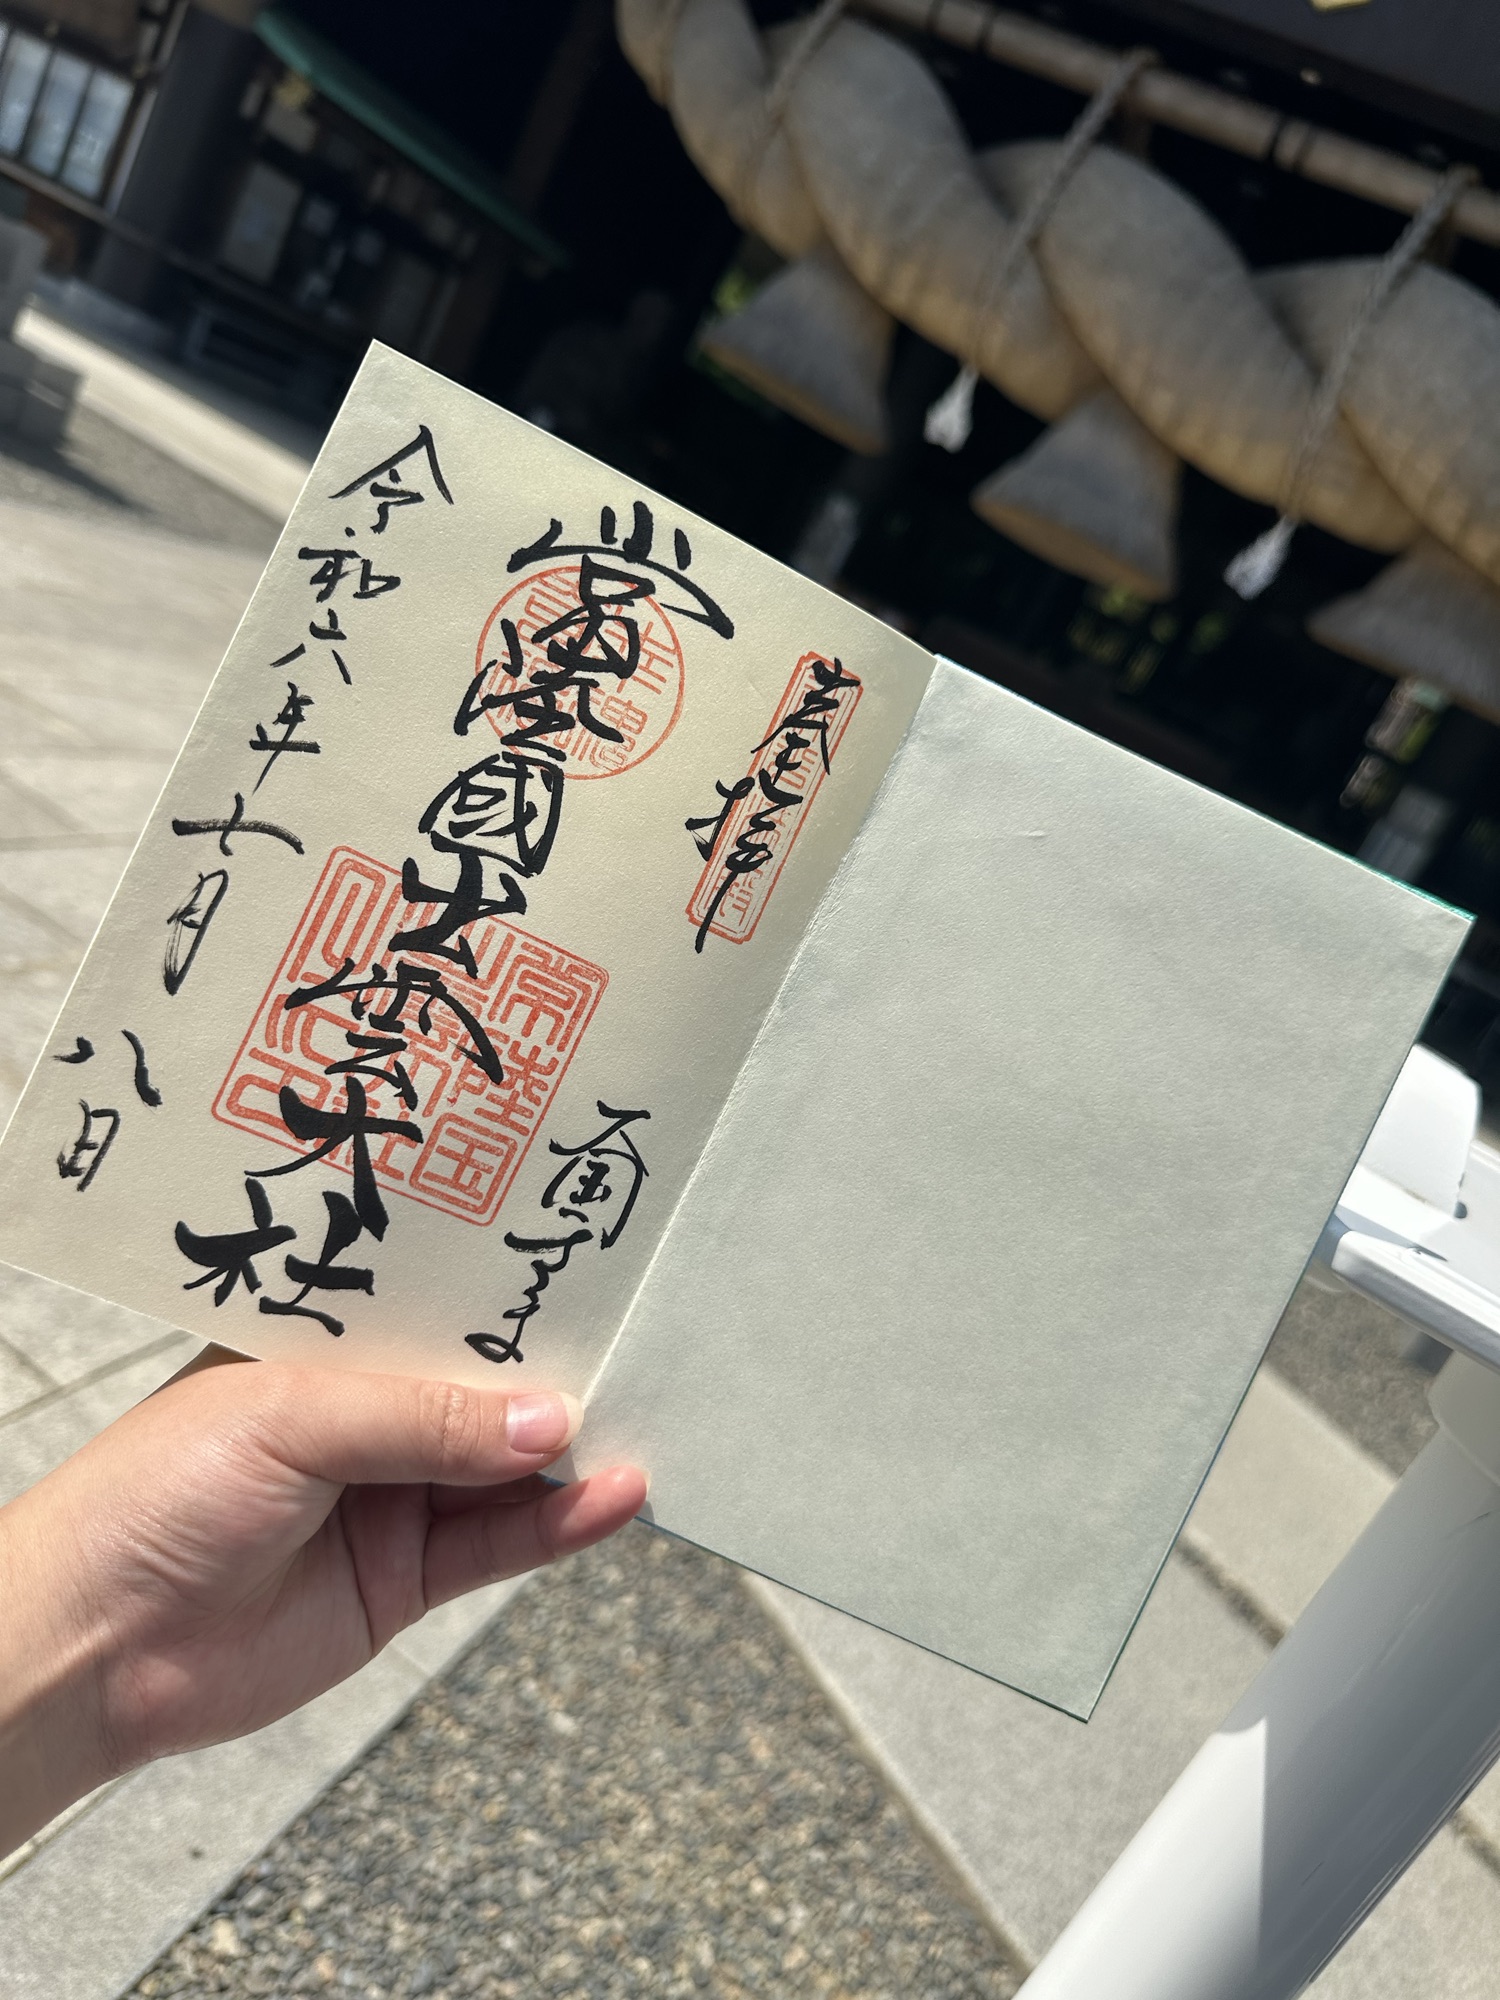 奉拝
さま
常陸國出雲大社
常陸国
出雲大社
令和六年七月八日